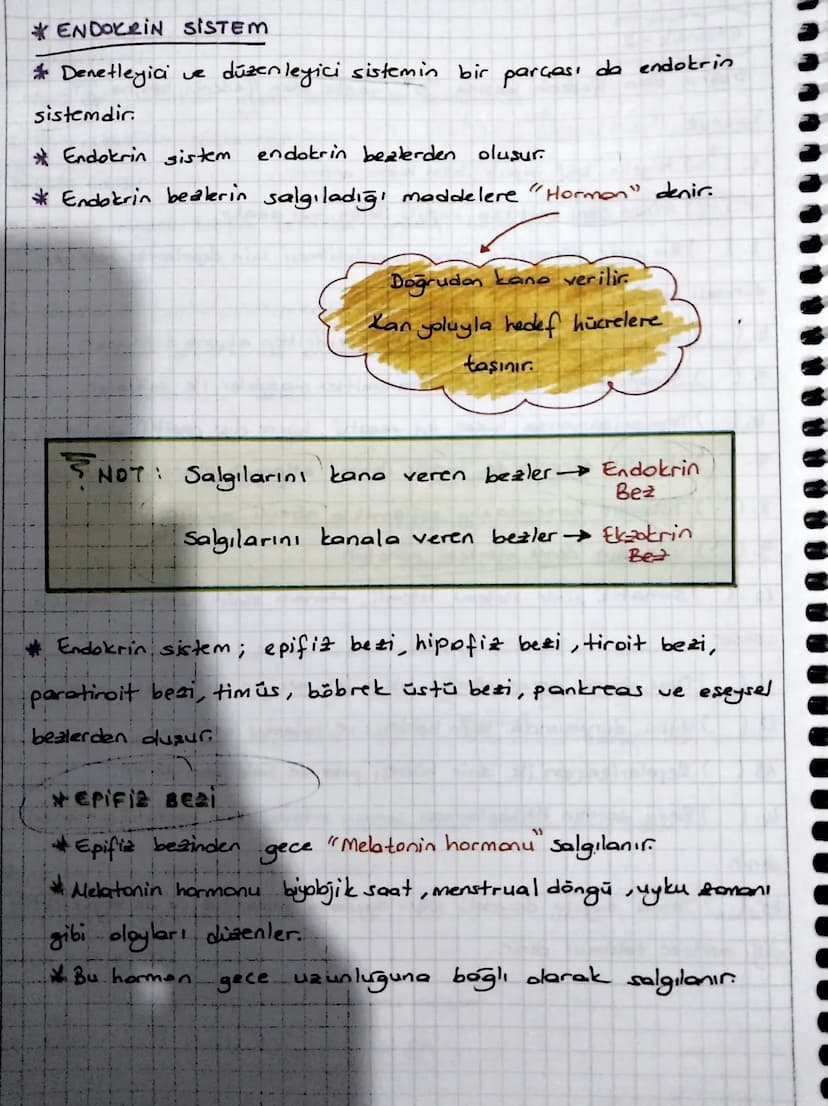 * ENDOKRİN SİSTEM
* Denetleyici ve düzenleyici sistemin bir parçası da endokrin
sistemdir.
* Endokrin sistem endokrin bezlerden oluşur.
* Endokrin bezlerin salgıladığı maddelere "Hormon" denir.
Doğrudan kana verilir.
Kan yoluyla hedef hücrelere
taşınır.
NOT: Salgılarını kana veren bezler → Endokrin
Bez
Salgılarını kanala veren bezler → Ekzokrin
Bez
* Endokrin sistem; epifiz bezi, hipofiz bezi, tiroit bezi,
paratiroit bezi, timüs, böbrek üstü bezi, pankreas ve eşeysel
bezlerden oluşur.
* EPİFİZ BEZİ
* Epifiz bezinden gece "Melatonin hormonu" salgılanır.
* Melatonin hormonu biyolojik saat, menstrual döngü, uyku zamanı
gibi olayları düzenler.
* Bu hormon gece uzunluğuna bağlı olarak salgılanır.